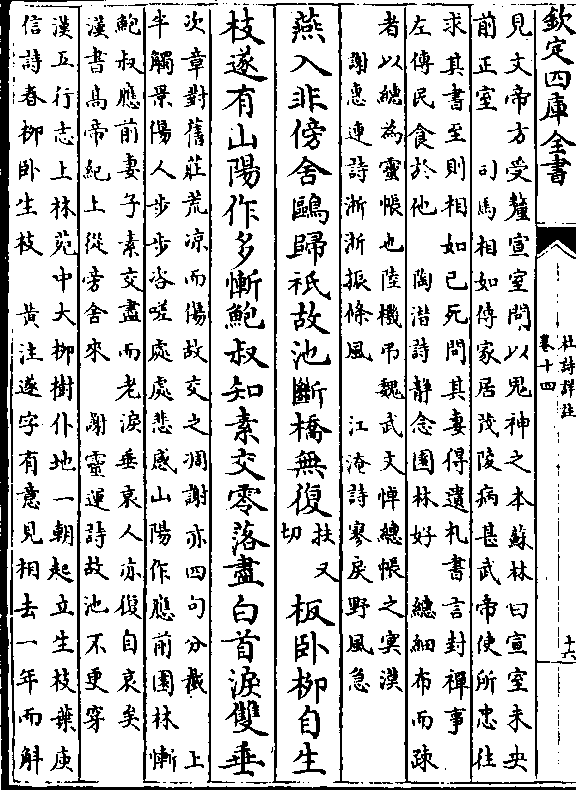 欽定四庫全書
杜詩詳註
卷十四
十六
見文帝方受釐宣室問以鬼神之本蘇林曰宣室未央
前正室　司馬相如傳家居茂陵病甚武帝使所忠往
求其書至則相如已死問其妻得遺札書言封禪事
左傳民食於他　陶潛詩靜念園林好　繐細布而疎
者以繐為靈帳也陸機弔魏武文悼繐帳之冥漠
謝惠連詩淅淅振條風　江淹詩寥戾野風急
燕入非傍舍鷗歸秪故池斷橋無復扶又切板臥柳自生
枝遂有山陽作多慚鮑叔知素交零落盡白首淚雙垂
次章對舊莊荒涼而傷故交之凋謝亦四句分截　上
半觸景傷人步步咨嗟處處悲感山陽作應前園林慚
鮑叔應前妻子素交盡而老淚垂哀人亦復自哀矣
漢書髙帝紀上從旁舍來　謝靈運詩故池不更穿
漢五行志上林苑中大柳樹仆地一朝起立生枝葉庾
信詩春柳卧生枝　黃注遂字有意見相去一年而斛